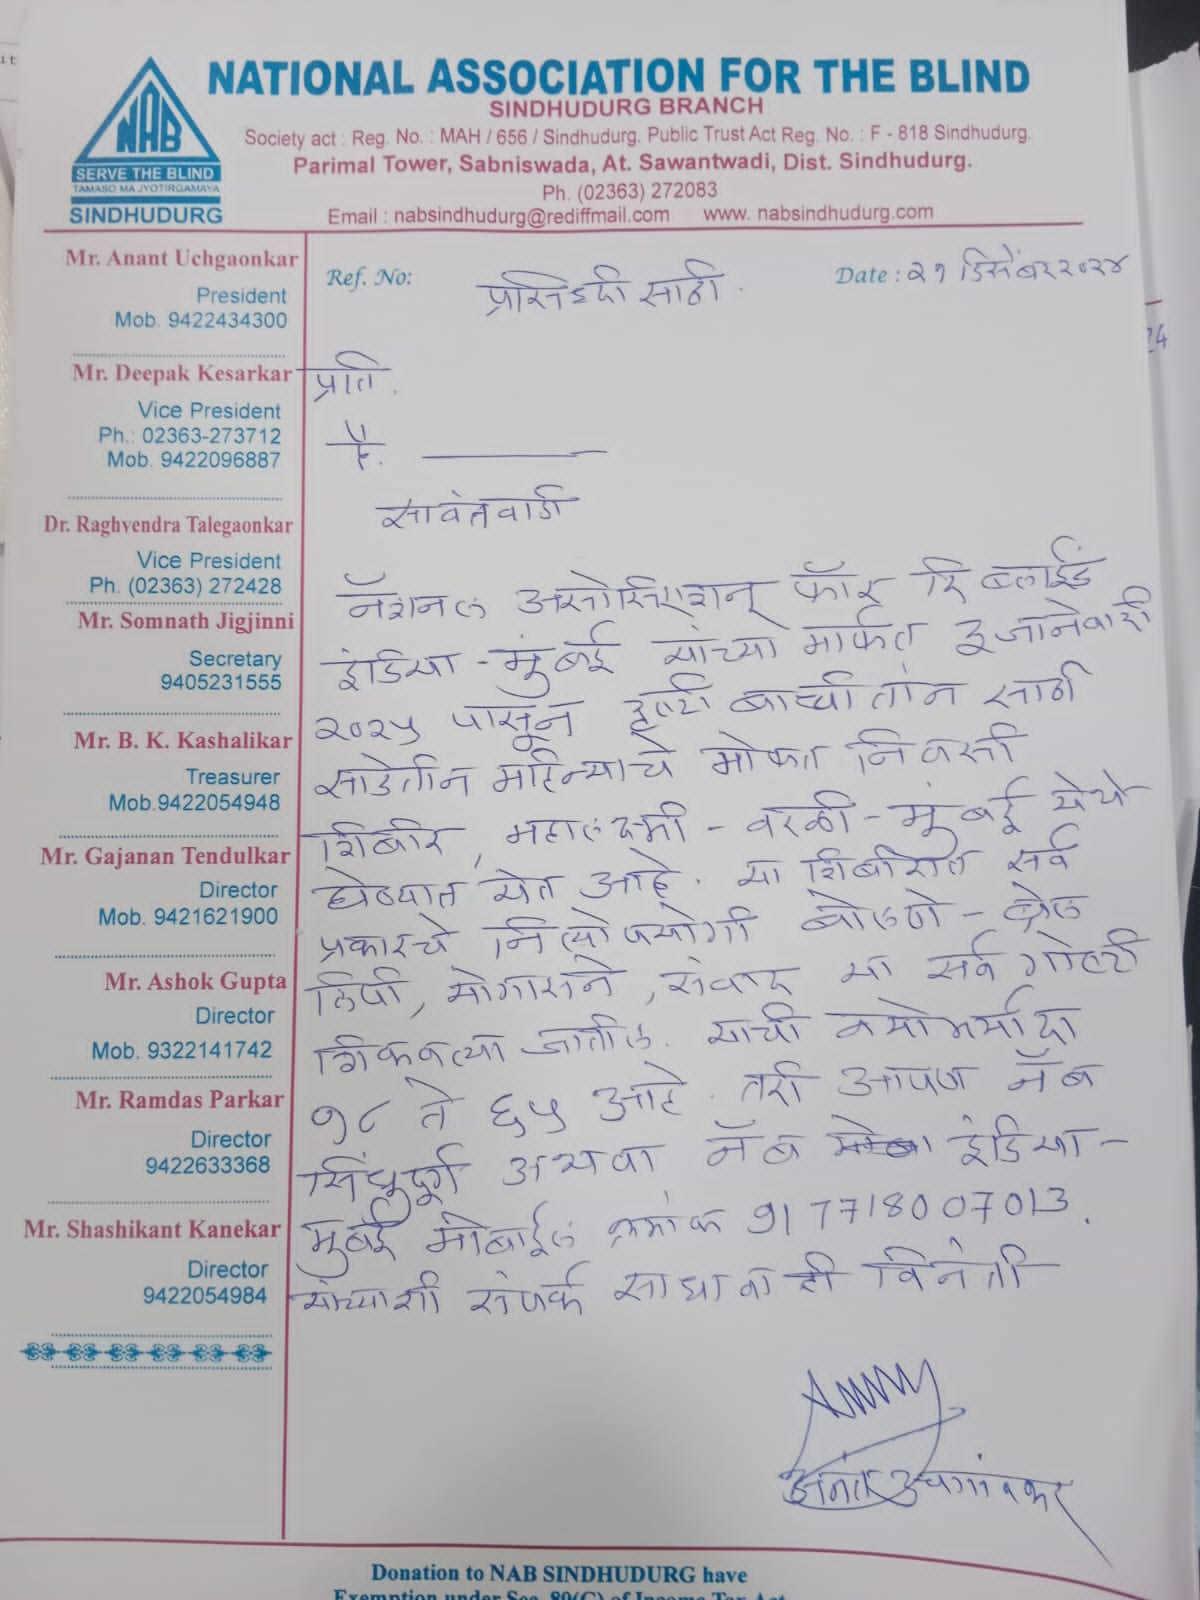 NATIONAL ASSOCIATION FOR THE BLIND
SINDHUDURG BRANCH
Society act : Reg. No. : MAH / 656 / Sindhudurg. Public Trust Act Reg. No. : F - 818 Sindhudurg.
Parimal Tower, Sabniswada, At. Sawantwadi, Dist. Sindhudurg.
Ph. (02363) 272083
Email : nabsindhudurg@rediffmail.com www. nabsindhudurg.com
NAB
SERVE THE BLIND
TAMASO MA JYOTIRGAMAYA
SINDHUDURG
Mr. Anant Uchgaonkar
President
Mob. 9422434300
Mr. Deepak Kesarkar
Vice President
Ph.: 02363-273712
Mob. 9422096887
Dr. Raghvendra Talegaonkar
Vice President
Ph. (02363) 272428
Mr. Somnath Jigjinni
Secretary
9405231555
Mr. B. K. Kashalikar
Treasurer
Mob.9422054948
Mr. Gajanan Tendulkar
Director
Mob. 9421621900
Mr. Ashok Gupta
Director
Mob. 9322141742
Mr. Ramdas Parkar
Director
9422633368
Mr. Shashikant Kanekar
Director
9422054984
Ref. No:
Date : २१ डिसेंबर २०२४
प्रसिद्धी साठी .
प्रति .
सावंतवाडी
नॅशनल असोसिएशन फॉर दि ब्लाईंड
इंडिया - मुंबई यांच्या मार्फत ३ जानेवारी
२०२५ पासून साठी
साडेतीन महिन्याचे मोफत निवासी
शिबीर, महालक्ष्मी - वरळी - मुंबई येथे
घेण्यात येत आहे. या शिबीरात सर्व
प्रकारचे नित्योपयोगी बोलणे - ब्रेल
लिपी, योगासने, संवाद या सर्व गोष्टी
शिकवल्या जातील. याची वयोमर्यादा
१८ ते ६५ आहे. तरी आपण नॅब
सिंधुदुर्ग अथवा नॅब इंडिया -
मुंबई मोबाईल क्रमांक 91 7718007013.
यांच्याशी संपर्क साधावा ही विनंती
अनंत उचगांवकर
Donation to NAB SINDHUDURG have
Exemption under Sec. 80(G) of Income Tax Act